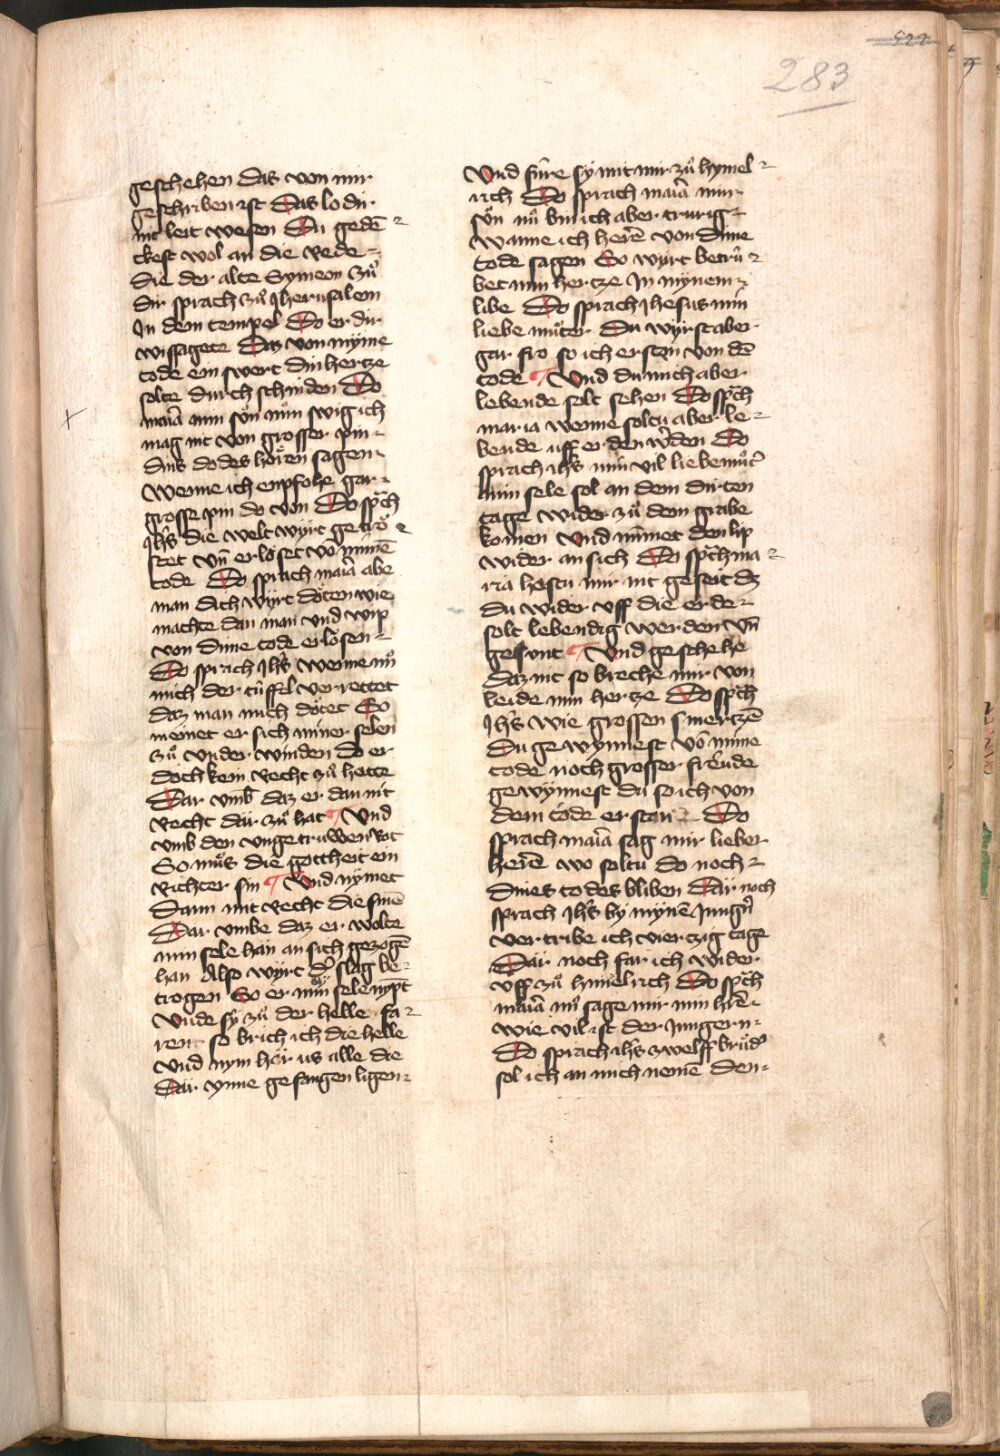 522
283
geschehen das von mir
geschriben ist Das lo dir
nit leit wesen Du gedē
ckest wol an die rede
die der alte Symeon zuͦ
dir sprach zuͦ Jherusalem
Jn dem tempel Do er dir
wissagete Daz von myme
tode ein swert din hertze
solte durch schniden Do
maͥa min sūn nuͦn swig ich
mag nit von grosser pin
dins dodes hoͤren sagen
Wenne ich enpfohe gar
grosse pin do von Do spͣch
Jhs die welt wurt getroͤ
stet vn̄ erloͤset vō mime
tode Do sprach maͥa abe
man dich wurt doͤten wie
machte dan man vnd wip
von dime tode erloͤsen
Do sprach Jhs wenne nuͦ
mich der tuͤffel verrettet
daz man mich doͤtet So
meinet er sich miner selen
zuͦ vnder winden do er
doch kein recht zuͦ hette
Dar vmb daz er dan nit
recht dar zuͦ hat Vnd
vmb den vngetruwen rot
So muͦs die gottheit ein
richter sin Vnd nymet
Dann mit recht die sinē
Dar vmbe daz er wolte
min sele han an sich gezogē
han Also wurt dͤ slag be
trogen So er min sele nypt
Vnde sy zuͦ der helle fa
ren so brich ich die helle
Vnd nym har us alle die
Dar ynne gefangen ligen
Vnd fuͤre sy mit mir zuͦ hymel
rich Do sprach maͥa min
suͦn nuͦ bin ich aber trurig
Wanne ich herē von dime
tode sagen So wurt betruͤ
bet min hertze Jn mynem
libe Do sprach Jhesus min
liebe muͦter Du wurst aber
gar fro so ich erston von dē
tode Vnd du mich aber
lebende solt sehen Do spͣch
maria wenne soltu aber le
bende uff erden wͤden Do
sprach ihs min vil liebe muͦtͤ
Min sele sol an dem dirten
tage wider zuͦ dem grabe
komen Vnd nīmet den lip
wider an sich Do spͣch ma
ria hestu mir nit geseit dz
du wider vff die erde
solt lebendig werden vn̄
gesunt Vnd geschehe
daz nit so breche mir von
leide min hertze Do spͣch
Jhs wie grossen smertzē
Du gewynnest vō mime
tode noch grosser freͧude
gewynnest du so ich von
dem tode erstan Do
sprach maͥa sag mir lieber
herē wo soltu do noch
dines todes bliben Dar noch
sprach Jhs by mynē Jungͤn
vertribe ich vierczig tage
Dar noch far ich wider
vff zuͦ himelrich Do spͣch
maͥa nuͦ sage mir min hrē
wie vil ist der Jungern
Do sprach ihs zwelff bruͤdͤ
sol ich an mich nemē den